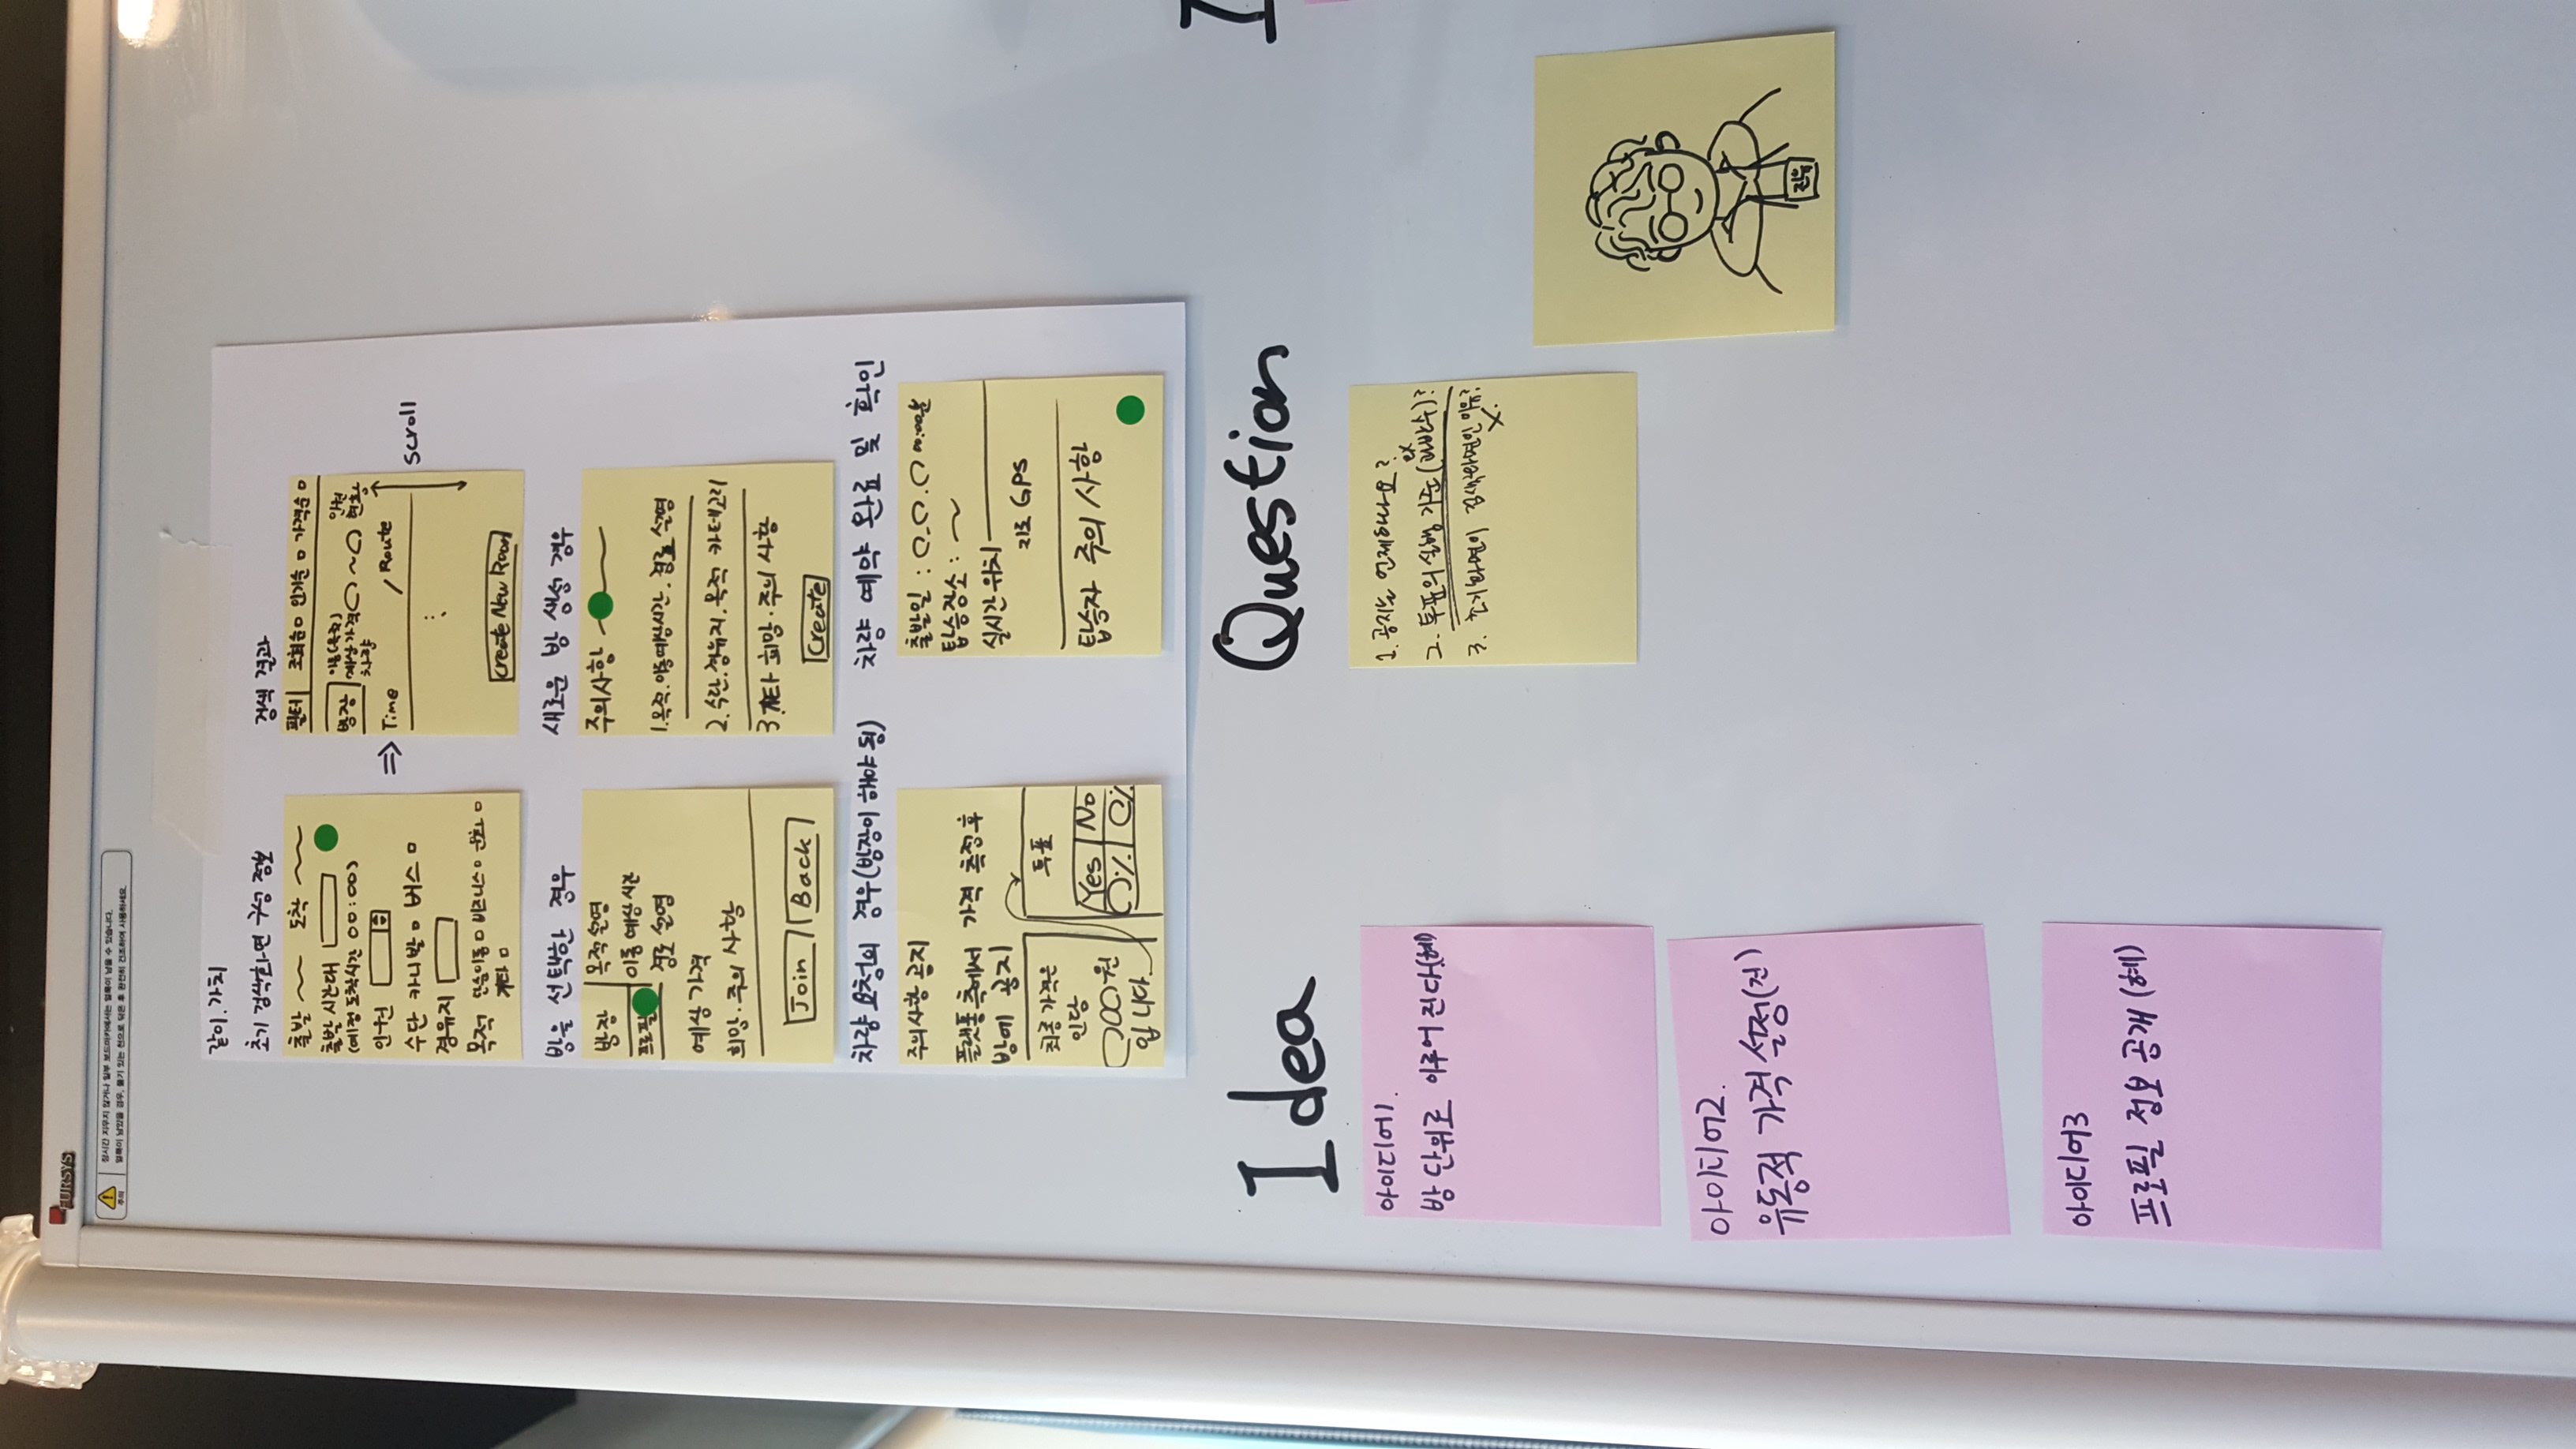 FURSYS
주의
장시간 지우지 않거나 일부 보드마카에서는 얼룩이 남을 수 있습니다.
얼룩이 남았을 경우, 물기 있는 천으로 닦은 후 완전히 건조하여 사용하세요.
같이.가치
초기 검색화면 구성 정보
출발 도착
출발 시간대
(예정 도착시간 00:00)
인원
수단 카니발 버스
경유지
목적 단순이동 비즈니스 문화
기타
⇒
검색 결과
필터 조회순 인기순 가격순
방장
이름(목적)
예상가격 ~
차량
인원
현황
Time / Route
scroll
Create New Room
방을 선택한 경우
방장
프로필
목적 설명
이동 예상 시간
경로 설명
예상 가격
희망·주의 사항
Join Back
새로운 방 생성 경우
주의사항
1.목적.이동예상시간.경로 설명
2.수단.경유지.목적 카테고리
3.기타 희망·주의 사항
Create
차량 요청의 경우(방장이 해야 됨)
주의사항 공지
플랫폼 측에서 가격 측정 후
방에 공지
최종 가격은
인당
000원
입니다.
투표
Yes No
0% 0%
차량 예약 완료 및 확인
출발일 : 0.0.0 00:00분
탑승장소 :
실시간 위치
지도 GPS
탑승자 주의 사항
Idea
아이디어1.
방 단위로 이루어 진다(혜)
아이디어2.
유동적 가격 설정(진)
아이디어3
프로필 정보 공개 (혜)
Question
1. 공지는 언제하나요?
ex
2. 투표의 실행 기준(과반수)?
3. 초기화면이 검색화면인 이유?
X.
진유
I